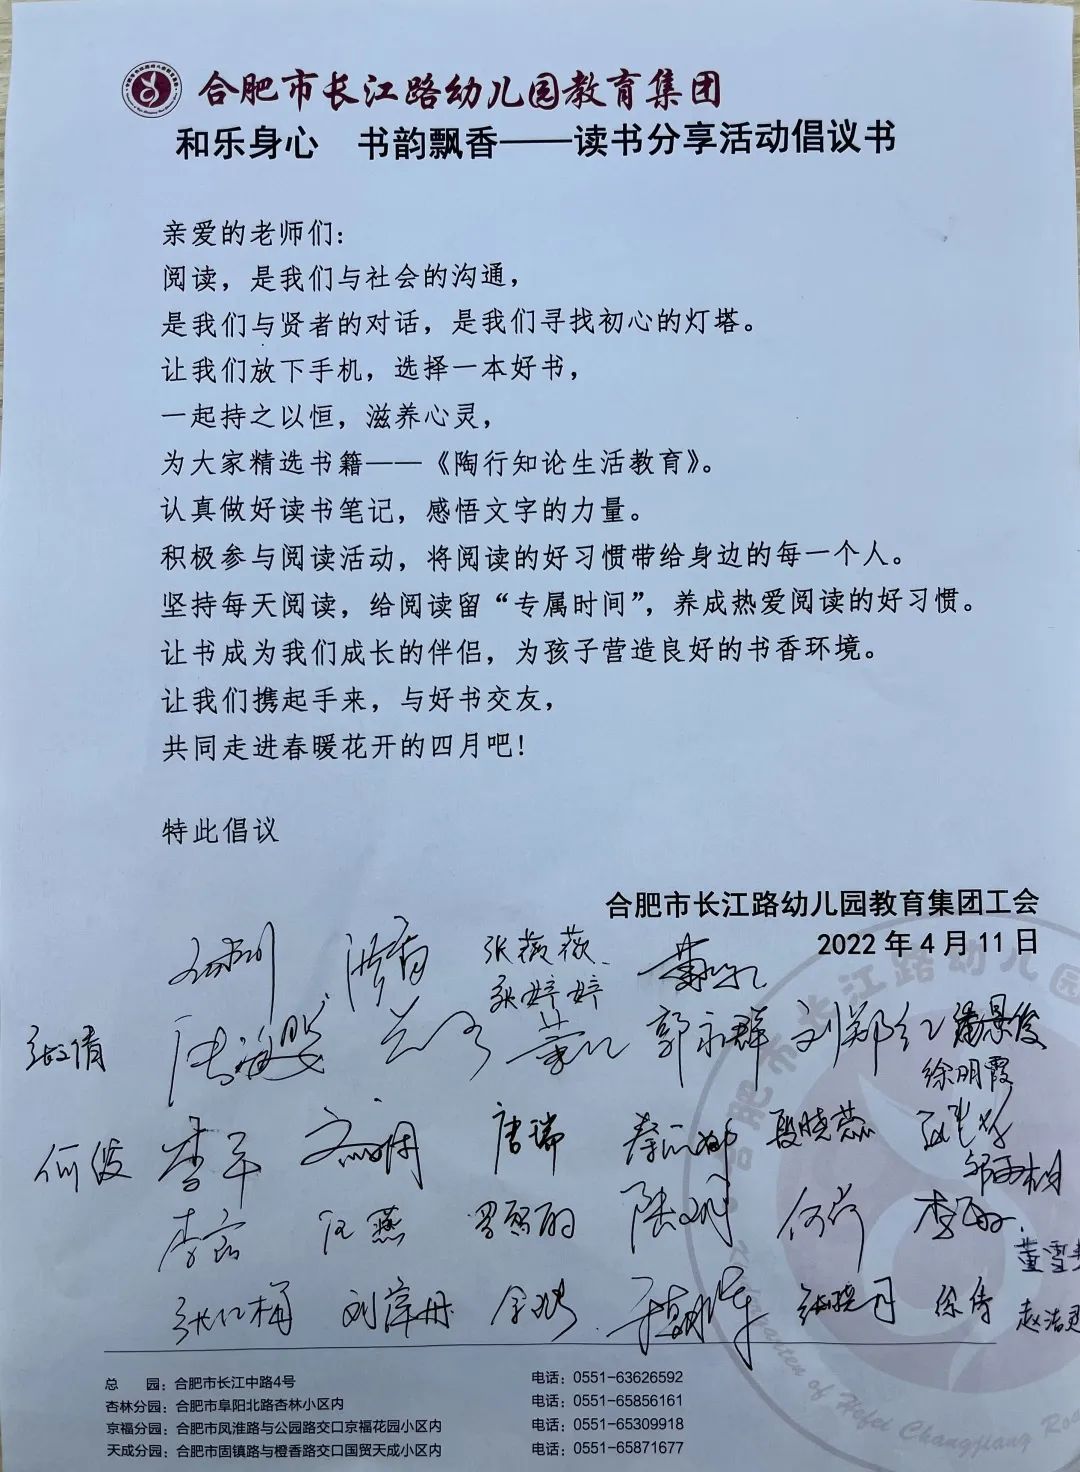 合肥市长江路幼儿园教育集团
和乐身心　书韵飘香——读书分享活动倡议书
亲爱的老师们：
阅读，是我们与社会的沟通，
是我们与贤者的对话，是我们寻找初心的灯塔。
让我们放下手机，选择一本好书，
一起持之以恒，滋养心灵，
为大家精选书籍——《陶行知论生活教育》。
认真做好读书笔记，感悟文字的力量。
积极参与阅读活动，将阅读的好习惯带给身边的每一个人。
坚持每天阅读，给阅读留“专属时间”，养成热爱阅读的好习惯。
让书成为我们成长的伴侣，为孩子营造良好的书香环境。
让我们携起手来，与好书交友，
共同走进春暖花开的四月吧！
特此倡议
合肥市长江路幼儿园教育集团工会
2022 年 4 月 11 日
张薇薇
张婷婷
郭永群 刘郑红
徐明霞
何俊 李平 唐瑞 段晓燕
汪燕 何尚
张红梅 徐倩
总　园：合肥市长江中路4号 电话：0551-63626592
杏林分园：合肥市阜阳北路杏林小区内 电话：0551-65856161
京福分园：合肥市凤淮路与公园路交口京福花园小区内 电话：0551-65309918
天成分园：合肥市固镇路与橙香路交口国贸天成小区内 电话：0551-65871677